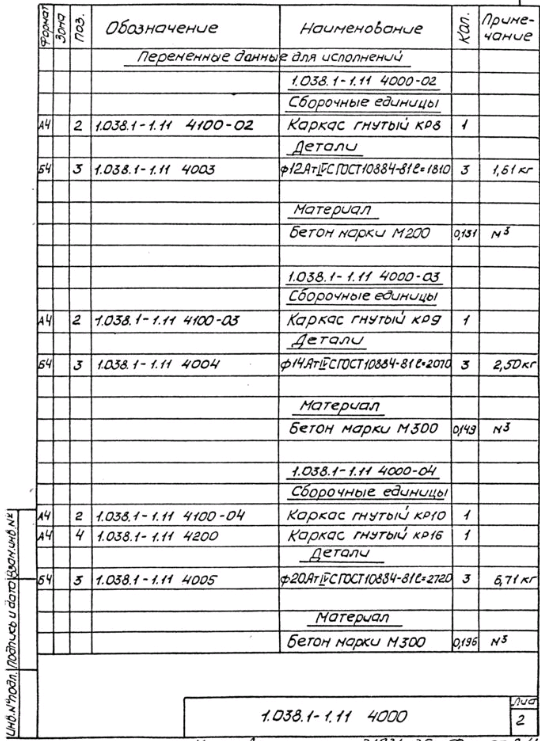 Формат Зона Поз. Обозначение Наименование Кол. Приме-чание
Переменные данные для исполнений
1.038.1-1.11 4000-02
Сборочные единицы
А4 2 1.038.1-1.11 4100-02 Каркас гнутый кр8 1
Детали
Б4 3 1.038.1-1.11 4003 ф12АтIVС ГОСТ10884-81 ℓ=1810 3 1,61 кг
Материал
Бетон марки М200 0,131 м³
1.038.1-1.11 4000-03
Сборочные единицы
А4 2 1.038.1-1.11 4100-03 Каркас гнутый кр9 1
Детали
Б4 3 1.038.1-1.11 4004 ф14АтIVС ГОСТ10884-81 ℓ=2070 3 2,50 кг
Материал
Бетон марки М300 0,149 м³
1.038.1-1.11 4000-04
Сборочные единицы
А4 2 1.038.1-1.11 4100-04 Каркас гнутый кр10 1
А4 4 1.038.1-1.11 4200 Каркас гнутый кр16 1
Детали
Б4 3 1.038.1-1.11 4005 ф20АтIVС ГОСТ10884-81 ℓ=2720 3 6,71 кг
Материал
Бетон марки М300 0,196 м³
Инв.№подл. Подпись и дата Взам.инв.№
1.038.1-1.11 4000
Лист
2